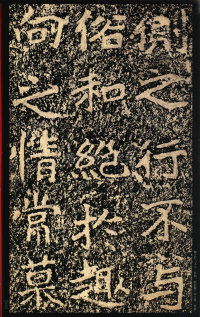 側之行不与
俗和絕於趣
向之情常慕